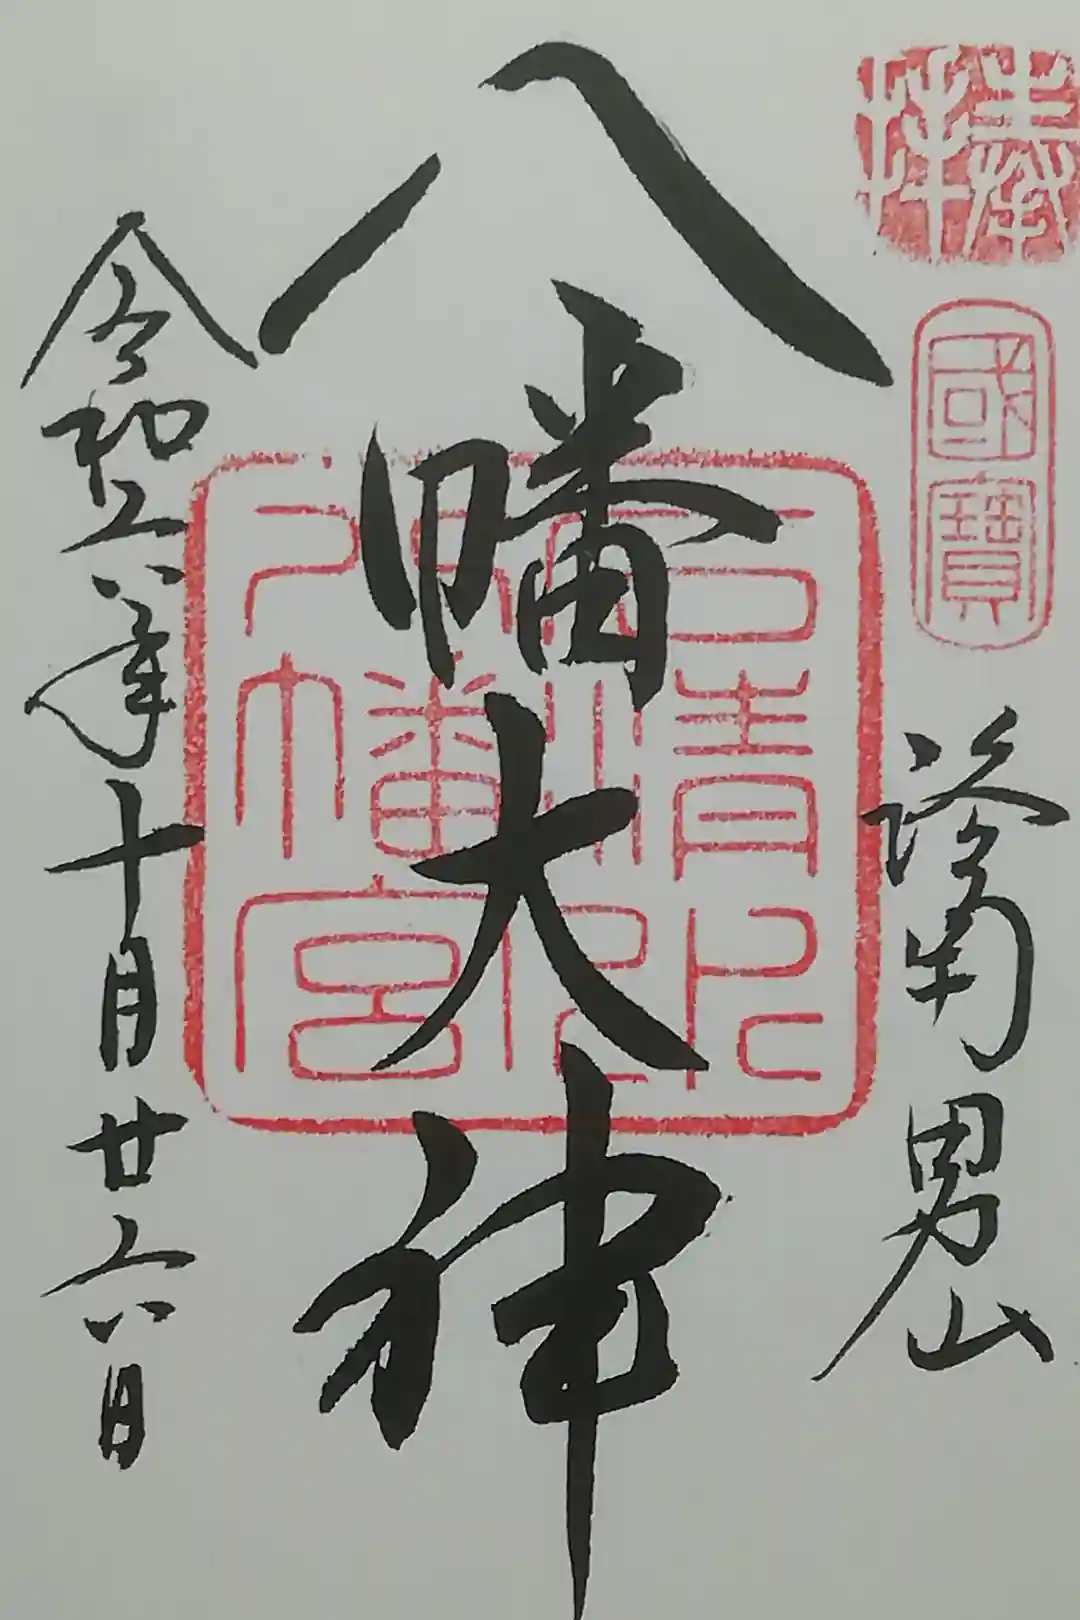 奉拝
國寶
洛南男山
八幡大神
石清水八幡宮印
令和六年十月廿六日